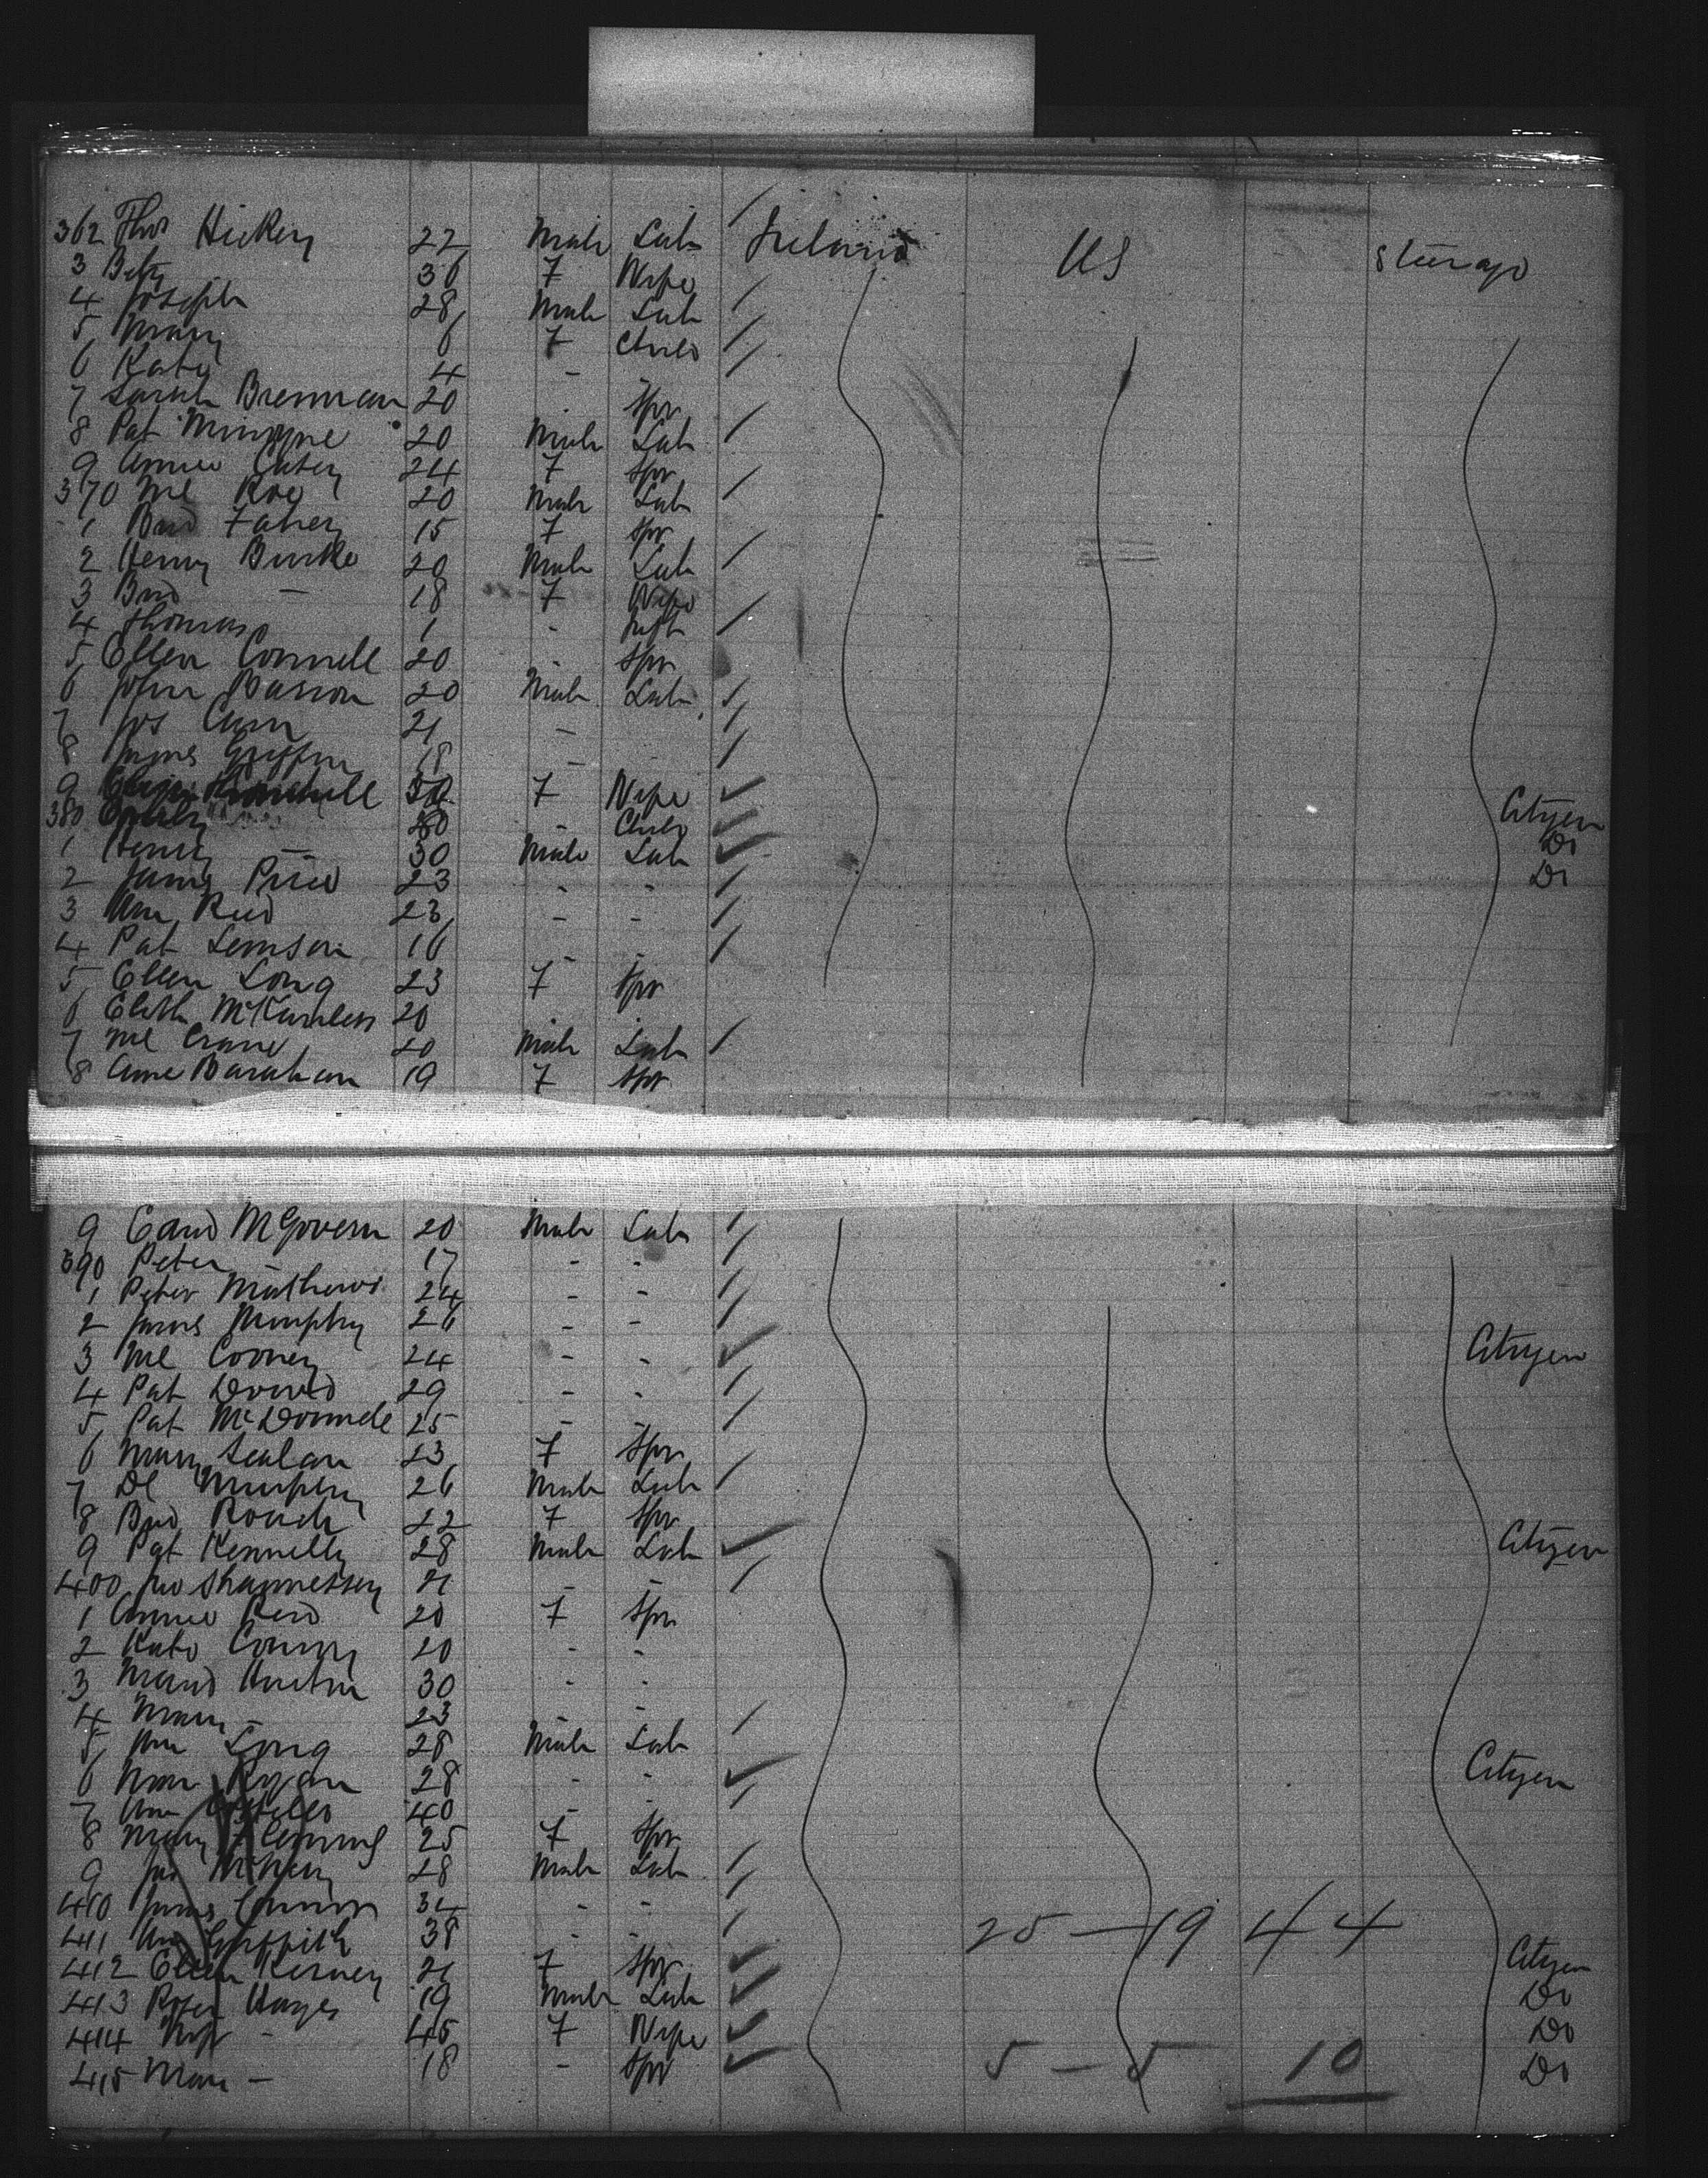 362 Thos Hickey 22 Male Lab Ireland US Steerage
3 Betty 30 F Wife
4 Joseph 28 Male Lab
5 Mary 6 F Child
6 Kate 4 -
7 Sarah Brennan 20 Spr
8 Pat 20 Male Lab
9 Annie 24 F Spr
370 Ml Roe 20 Male Lab
1 Brid Fahey 15 F Spr
2 Henry Burke 20 Male Lab
3 Brid - 18 F Wife
4 Thomas 1 - Inft
5 Ellen Connell 20 - Spr
6 John Barron 20 Male Lab
7 Jos 21 -
8 James Griffin 18 -
9 30 F Wife Citizen
380 - Child Do
1 Henry - 30 Male Lab Do
2 James Price 23 - -
3 Wm Reid 23 - -
4 Pat 16 - -
5 Ellen Long 23 F Spr
6 Elizth 20
7 Ml Crane 20 Male Lab
8 Anne 19 F Spr
9 Edwd McGovern 20 Male Lab
390 Peter - 17 - -
1 Peter Mathews 24 - -
2 James Murphy 26 - -
3 Ml Cooney 24 - - Citizen
4 Pat 29 - -
5 Pat McDonnell 25 - -
6 Mary Scalan 23 F Spr
7 Dl Murphy 26 Male Lab
8 Brid Roach 22 F Spr
9 Pat Kennelly 28 Male Lab Citizen
400 Jno Shaunessy 21 - -
1 Annie Reid 20 F Spr
2 Kate 20 - -
3 30 - -
4 Mary - 23 - -
5 Wm Long 28 Male Lab
6 Ryan 28 - - Citizen
7 Wm Costello 40 - -
8 Mary Flemming 25 F Spr
9 Jno 28 Male Lab
410 James Connor 34 - -
411 Wm Griffith 38 - - 25 - 19 44
412 Ellen Kerney 21 F Spr Citizen
413 Hayes 19 Male Lab Do
414 - 45 F Wife Do
415 Mary - 18 - Spr 5 - 5 10 Do